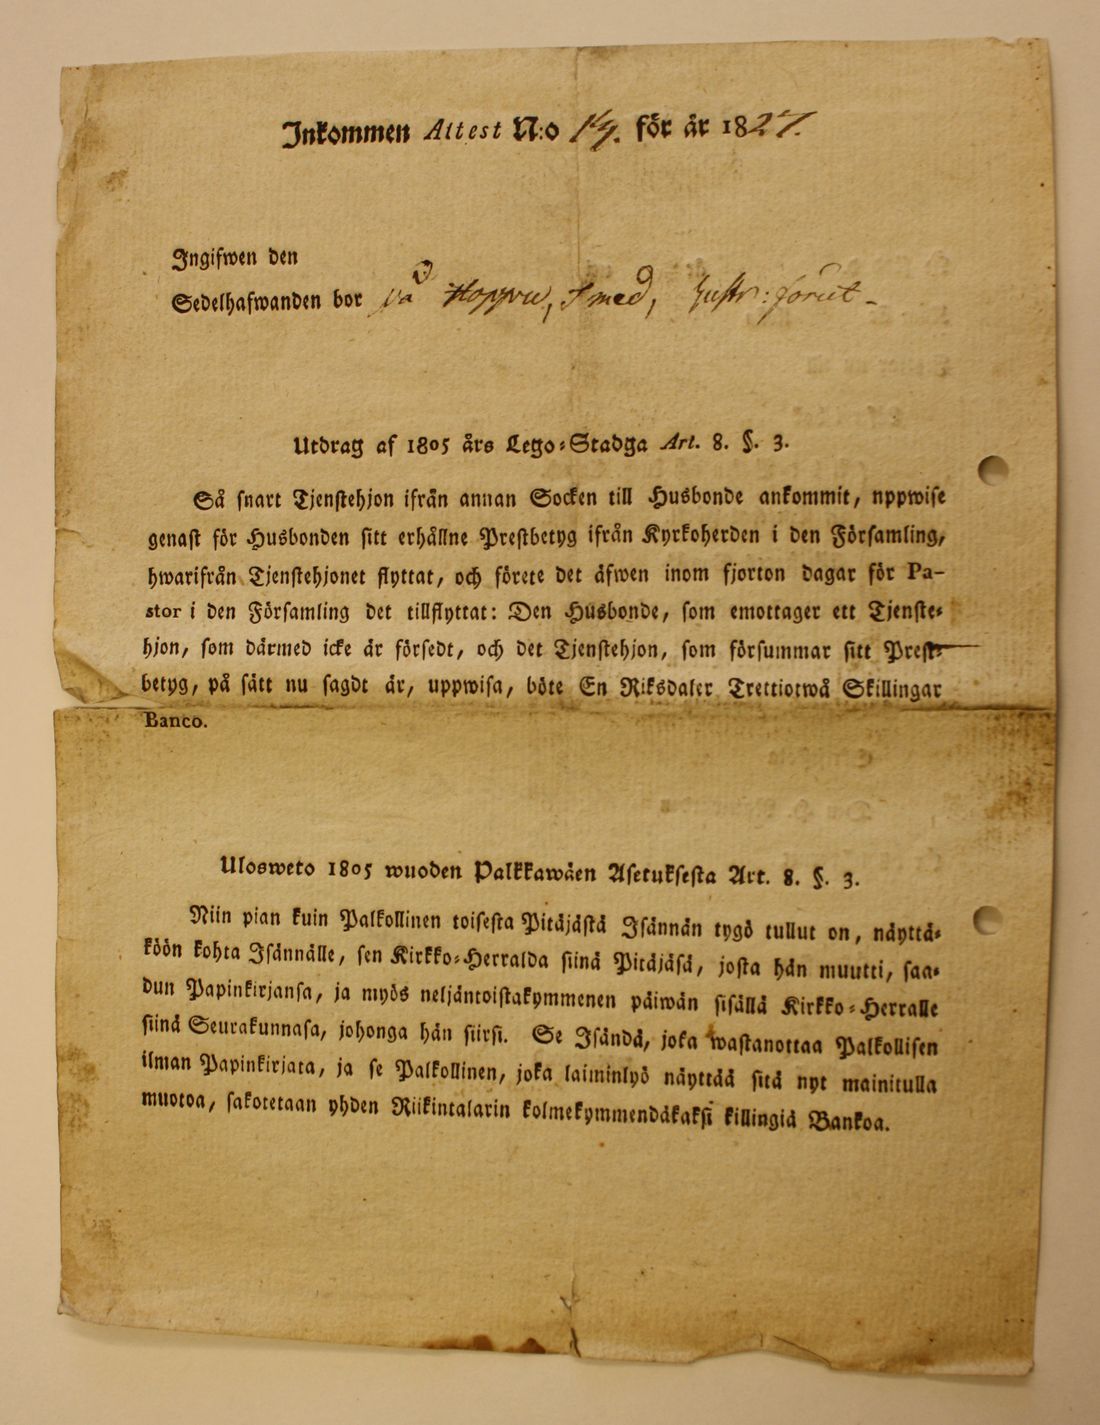 Inkommen Attest N:o 17. för år 1827.
Ingifwen den
Sedelhafwanden bor på Hoppu, Smed, Hustr: förut -
Utdrag af 1805 års Lego-Stadga Art. 8. §. 3.
Så snart Tjenstehjon ifrån annan Socken till Husbonde ankommit, nppwise
genast för Husbonden sitt erhållne Prestbetyg ifrån Kyrkoherden i den Församling,
hwarifrån Tjenstehjonet flyttat, och förete det äfwen inom fjorton dagar för Pa-
stor i den Församling det tillflyttat: Den Husbonde, som emottager ett Tjenste-
hjon, som därmed icke är försedt, och det Tjenstehjon, som försummar sitt Prest-
betyg, på sätt nu sagdt är, uppwisa, böte En Riksdaler Trettiotwå Skillingar
Banco.
Ulosweto 1805 wuoden Palkkawäen Asetuksesta Art. 8. §. 3.
Niin pian kuin Palkollinen toisesta Pitäjästä Isännän tygö tullut on, näyttä-
köön kohta Isännälle, sen Kirkko-Herralda siinä Pitäjäsä, josta hän muutti, saa-
dun Papinkirjansa, ja myös neljäntoistakymmenen päiwän sisällä Kirkko-Herralle
siinä Seurakunnasa, johonga hän siirsi. Se Isändä, joka wastanottaa Palkollisen
ilman Papinkirjata, ja se Palkollinen, joka laiminlyö näyttää sitä nyt mainitulla
muotoa, sakotetaan yhden Riikintalarin kolmekymmendäkaksi killingiä Bankoa.